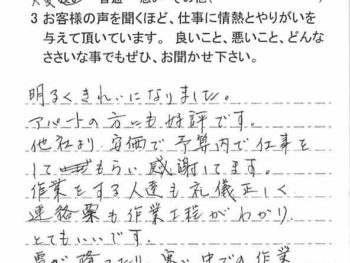 3 お客様の声を聞くほど、仕事に情熱とやりがいを
与えて頂いています。 良いこと、悪いこと、どんな
ささいな事でもぜひ、お聞かせ下さい。
明るくきれいになりました。
アパートの方にも好評です。
他社より安価で予算内で仕事を
してもらい感謝してます。
作業をする人達も礼儀正しく
連絡票も作業工程がわかり、
とてもいいです。
雪が降ったり、寒い中での作業